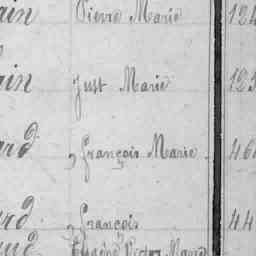 ain Pierre Marie 124
ain Just Marie 125
ard „ François Marie 460
ard „ François 44
Eugène Victor Marie